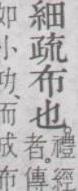 細疏布也。
禮經
者。傳
如小功、而成布